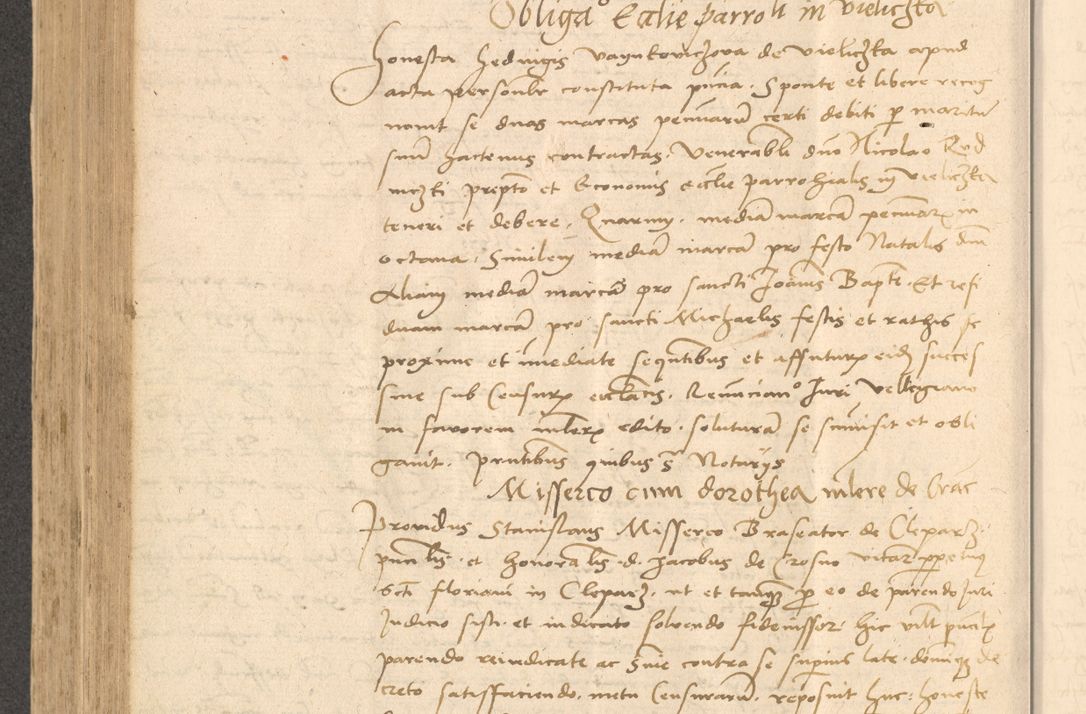 Obliga° Ecclie parroli in vieliczka
Honesta Hedvigis vaynkoviczova de vieliczka apud
acta personlr constituta pncia. Sponte et libere recog
novit se duas marcas pecuniaru certi debiti p maritu
suu hactenus contractas. Venerabli dno Nicolao
prepto et Economis ecclie parrohialis in vieliczka
teneri et debere. Quarum mediam marcam pecuniarum in
octava. Similem mediam marcam pro festo Natalis dni
Aliam mediam marcam pro sancti Joannis Bapte. Et resi
duam marcam pro sancti Michaelis festis et rathis se
proxime et imediate sequntibus et affuturis eid succes
sive sub censuris ecclacis. Renuncian° Juri Vellegiano
in favorem mlerum edito. soluturam se sumisit et obli
gavit. Prntibus quibus s Notarys
Misserco cum dorothea mlere de Crac
Providus Stanislaus Misserco Braseator de Cleparz
pncialis et honorabilis d. Jacobus de Crosno vicar perpetuus
Scti floriani in Cleparz. ut et tanq p eo de parendo Juri
Judicio sisti et iudicato solvendo fideiussor. hic
parendo rei iudicate ac snie contra se superius late. doming de
creto satisfaciendo. metu Censurarum. reposuit huc honeste